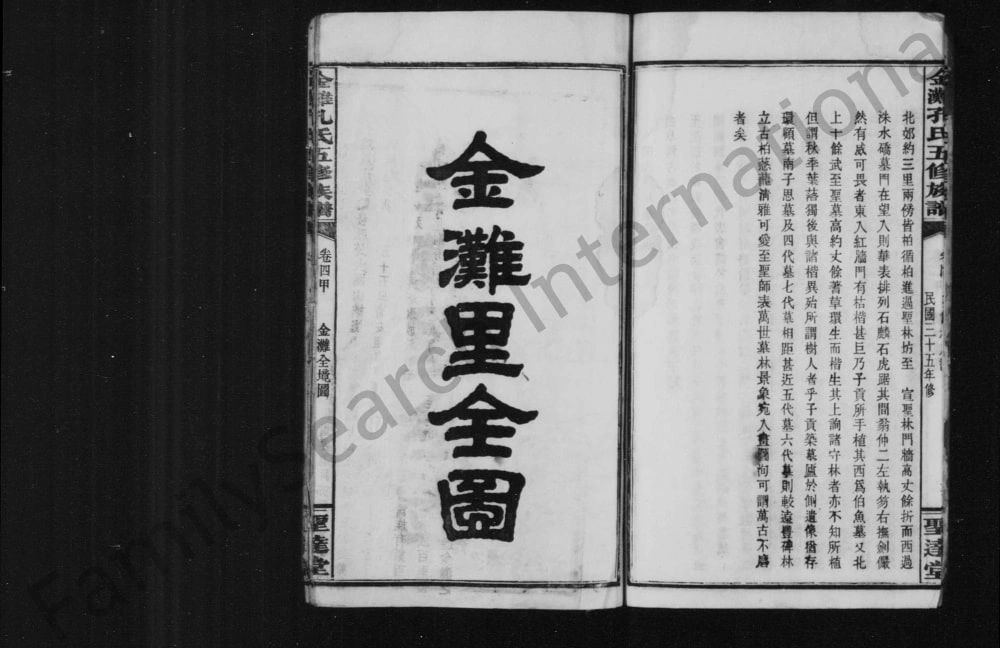 金灘孔氏五修族譜
民國三十五年修
聖達堂
北郊約三里兩傍皆柏循柏進過聖林坊至 宣聖林門牆高丈餘折而西過
洙水橋墓門在望入則華表排列石麟石虎踞其間翁仲二左執笏右撫劍儼
然有威可畏者東入紅牆門有枯楷甚巨乃子貢所手植其西爲伯魚墓又北
上十餘武至聖墓高約丈餘蓍草環生而楷生其上詢諸守林者亦不知所植
但謂秋季葉落獨後與諸楷異殆所謂樹人者乎子貢築墓廬於側遺像猶存
環顧墓南子思墓及四代墓七代墓相距甚近五代墓六代墓則較遠豐碑林
立古柏葱蘢清雅可愛至聖師表萬世墓林景象宛入畫圖洵可謂萬古不磨
者矣
金灘里全圖
金灘孔氏五修族譜
卷四甲
金灘全境圖
聖達堂
FamilySearch International